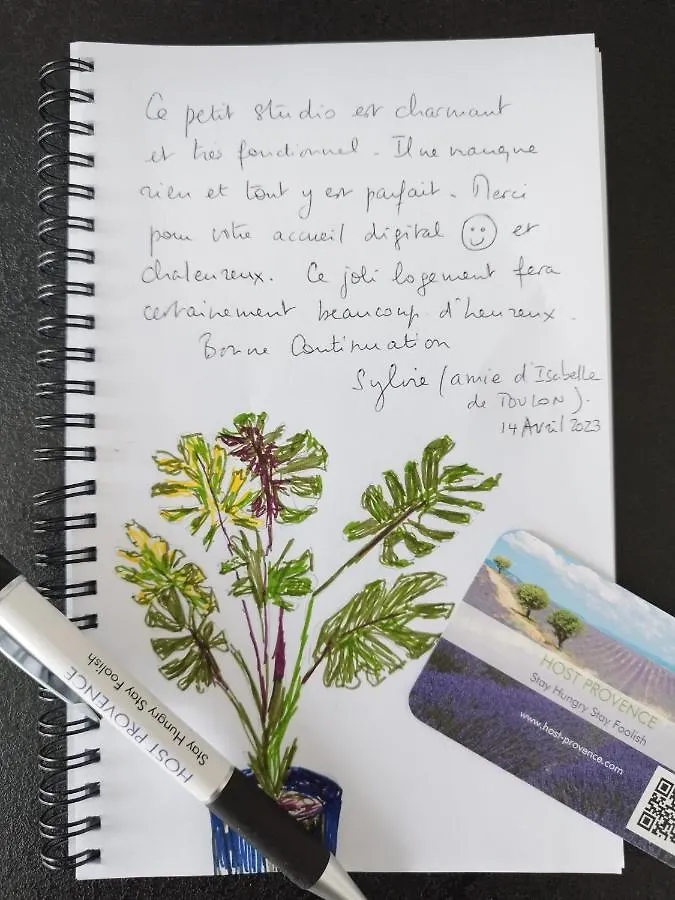 Ce petit studio est charmant
et très fonctionnel. Il ne manque
rien et tout y est parfait. Merci
pour votre accueil digital et
chaleureux. Ce joli logement fera
certainement beaucoup d'heureux.
Bonne Continuation
Sylvie (amie d'Isabelle
de TOULON).
14 Avril 2023
HOST PROVENCE
Stay Hungry Stay Foolish
www.host-provence.com
HOST PROVENCE
Stay Hungry Stay Foolish